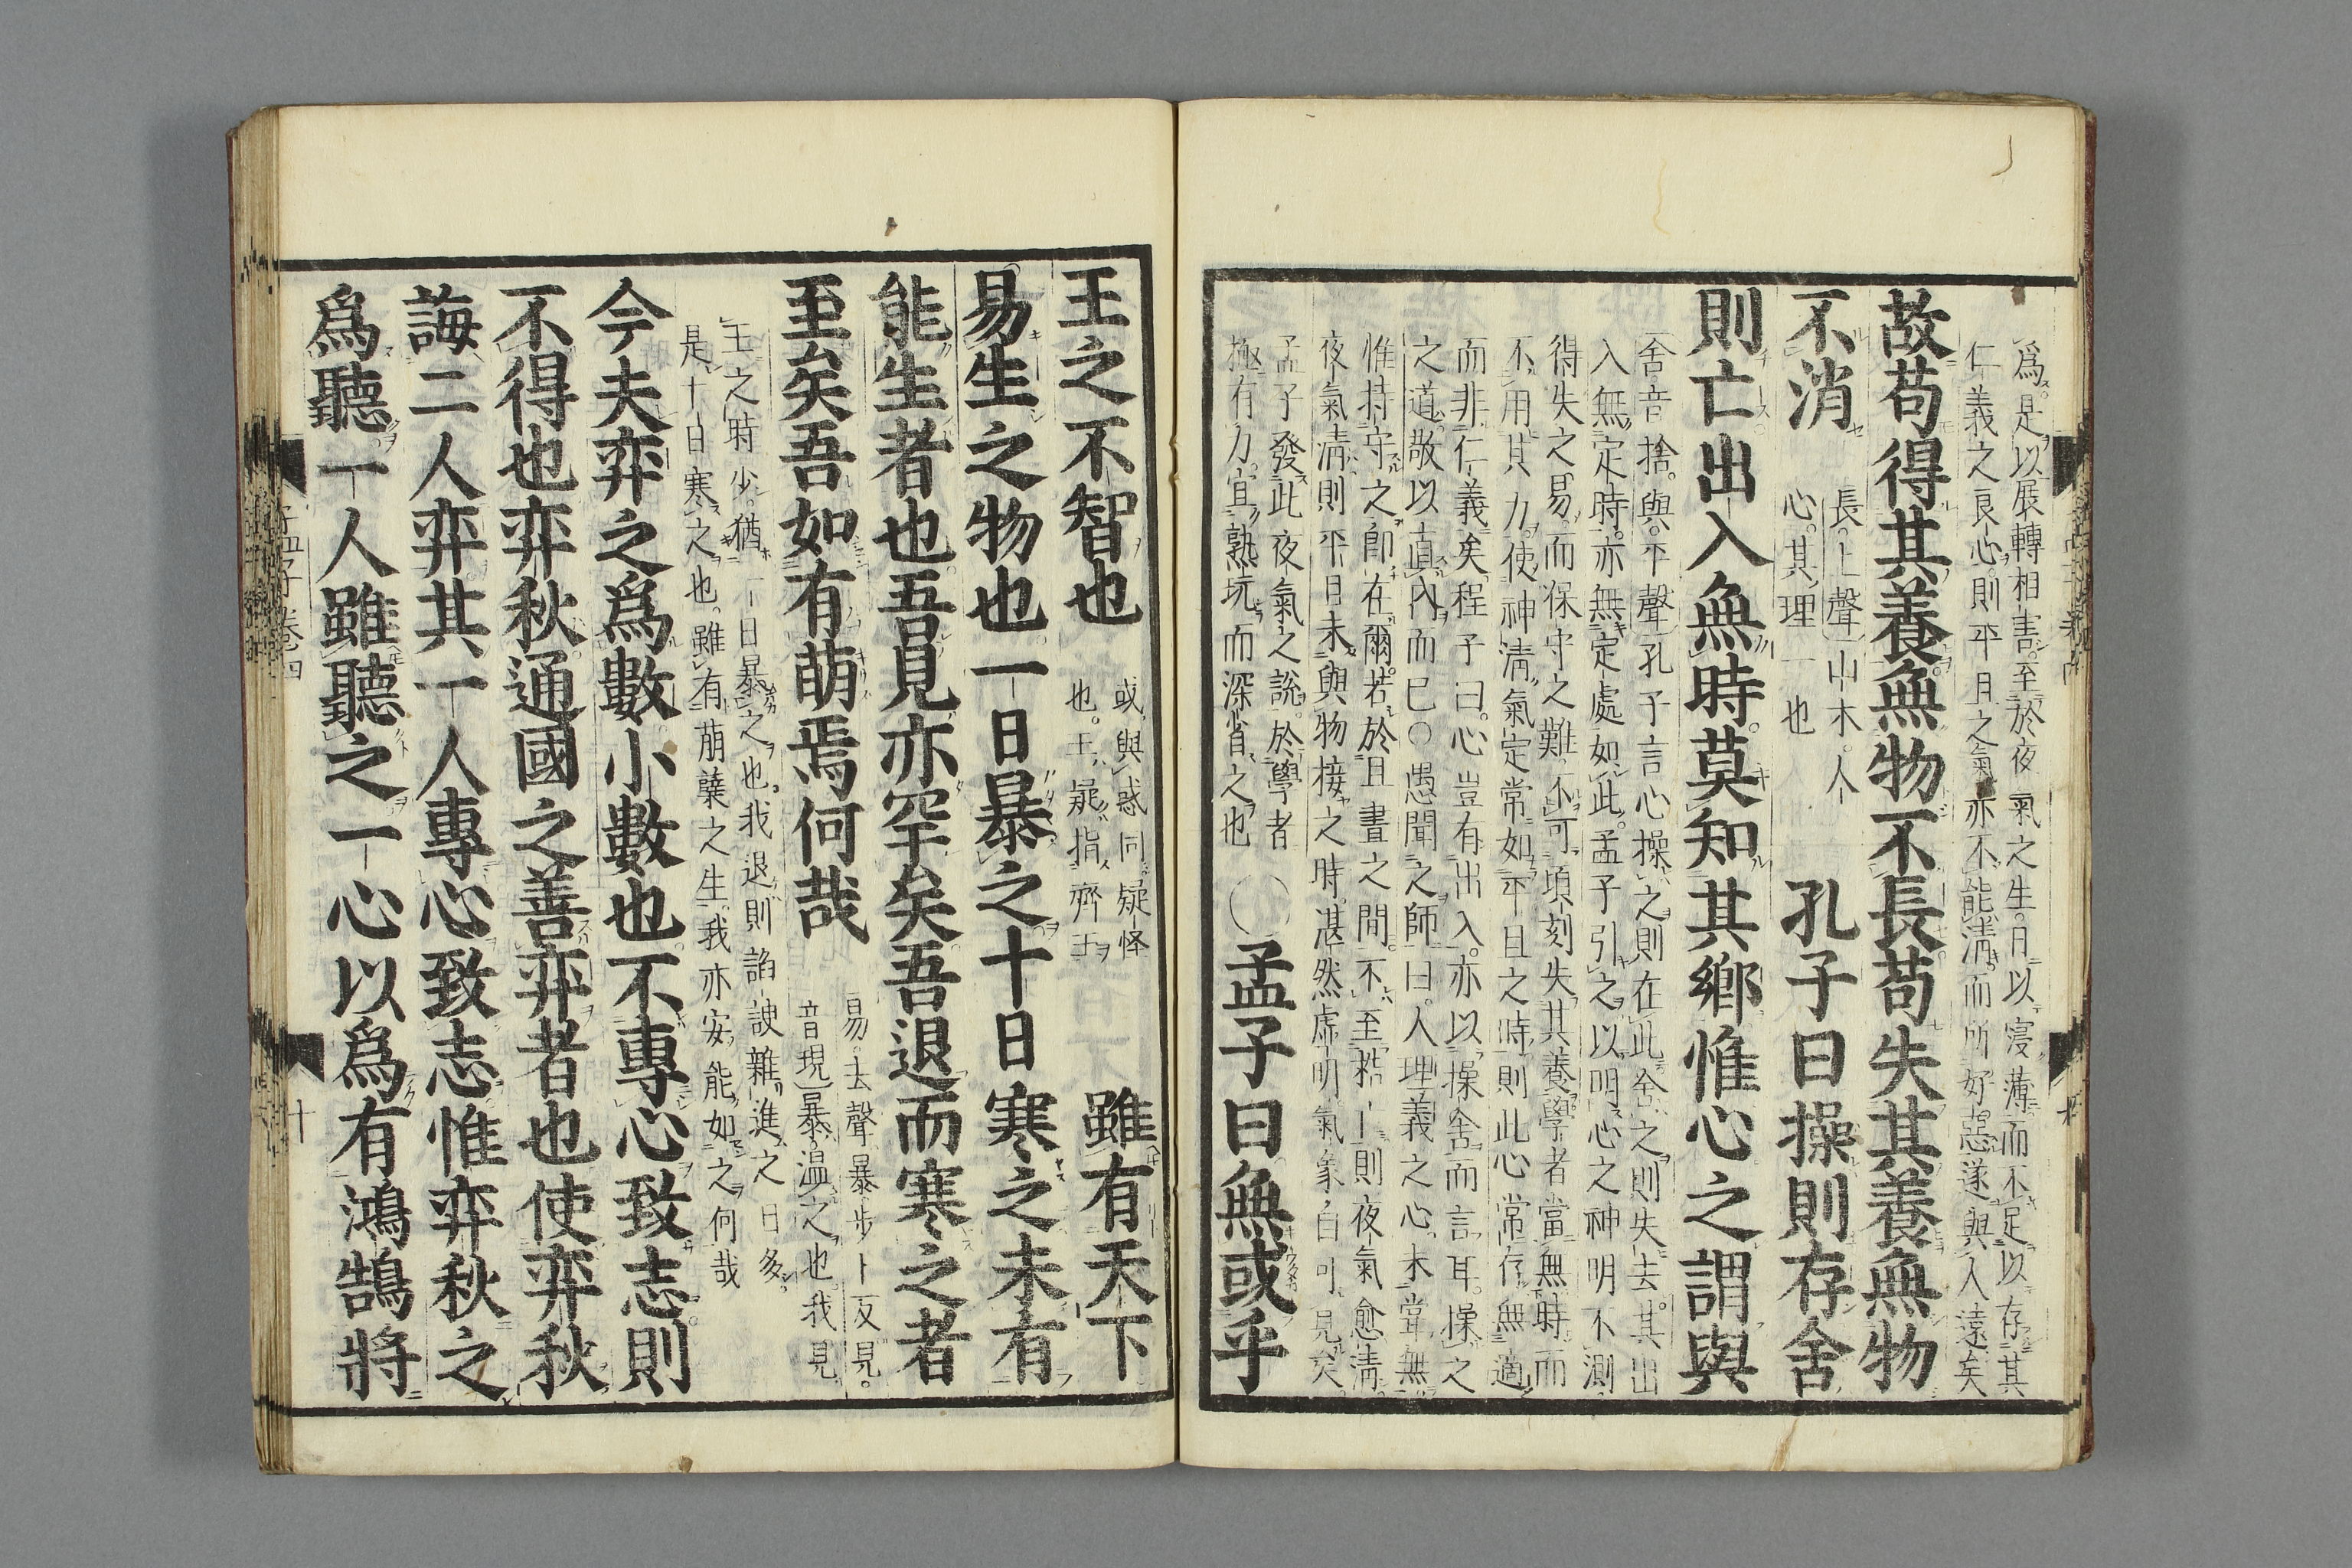 爲是以展轉相害至於夜氣之生日以寖薄而不足以存其
仁義之良心則平旦之氣亦不能淸而所好惡遂與人遠矣
故苟得其養無物不長苟失其養無物
不消
長上聲山木人
心其理一也
孔子曰操則存舍
則亡出入無時莫知其鄕惟心之謂與
舍音捨與平聲孔子言心操之則在此舍之則失去其出
入無定時亦無定處如此孟子引之以明心之神明不測
得失之易而保守之難不可頃刻失其養學者當無時而
不用其力使神淸氣定常如平旦之時則此心常存無適
而非仁義矣程子曰心豈有出入亦以操舍而言耳操之
之道敬以直內而已○愚聞之師曰人理義之心未嘗無
惟持守之卽在爾若於旦晝之間不至梏亡則夜氣愈淸
夜氣淸則平旦未與物接之時湛然虛明氣象自可見矣
孟子發此夜氣之說於學者
極有力宜熟玩而深省之也
○孟子曰無或乎
王之不智也
或與惑同疑怪
也王疑指齊王
雖有天下
易生之物也一日暴之十日寒之未有
能生者也吾見亦罕矣吾退而寒之者
至矣吾如有萌焉何哉
易去聲暴步卜反見
音現暴溫之也我見
王之時少猶一日暴之也我退則諂諛雜進之日多
是十日寒之也雖有萌蘖之生我亦安能如之何哉
今夫弈之爲數小數也不專心致志則
不得也弈秋通國之善弈者也使弈秋
誨二人弈其一人專心致志惟弈秋之
爲聽一人雖聽之一心以爲有鴻鵠將
孟子卷四
十